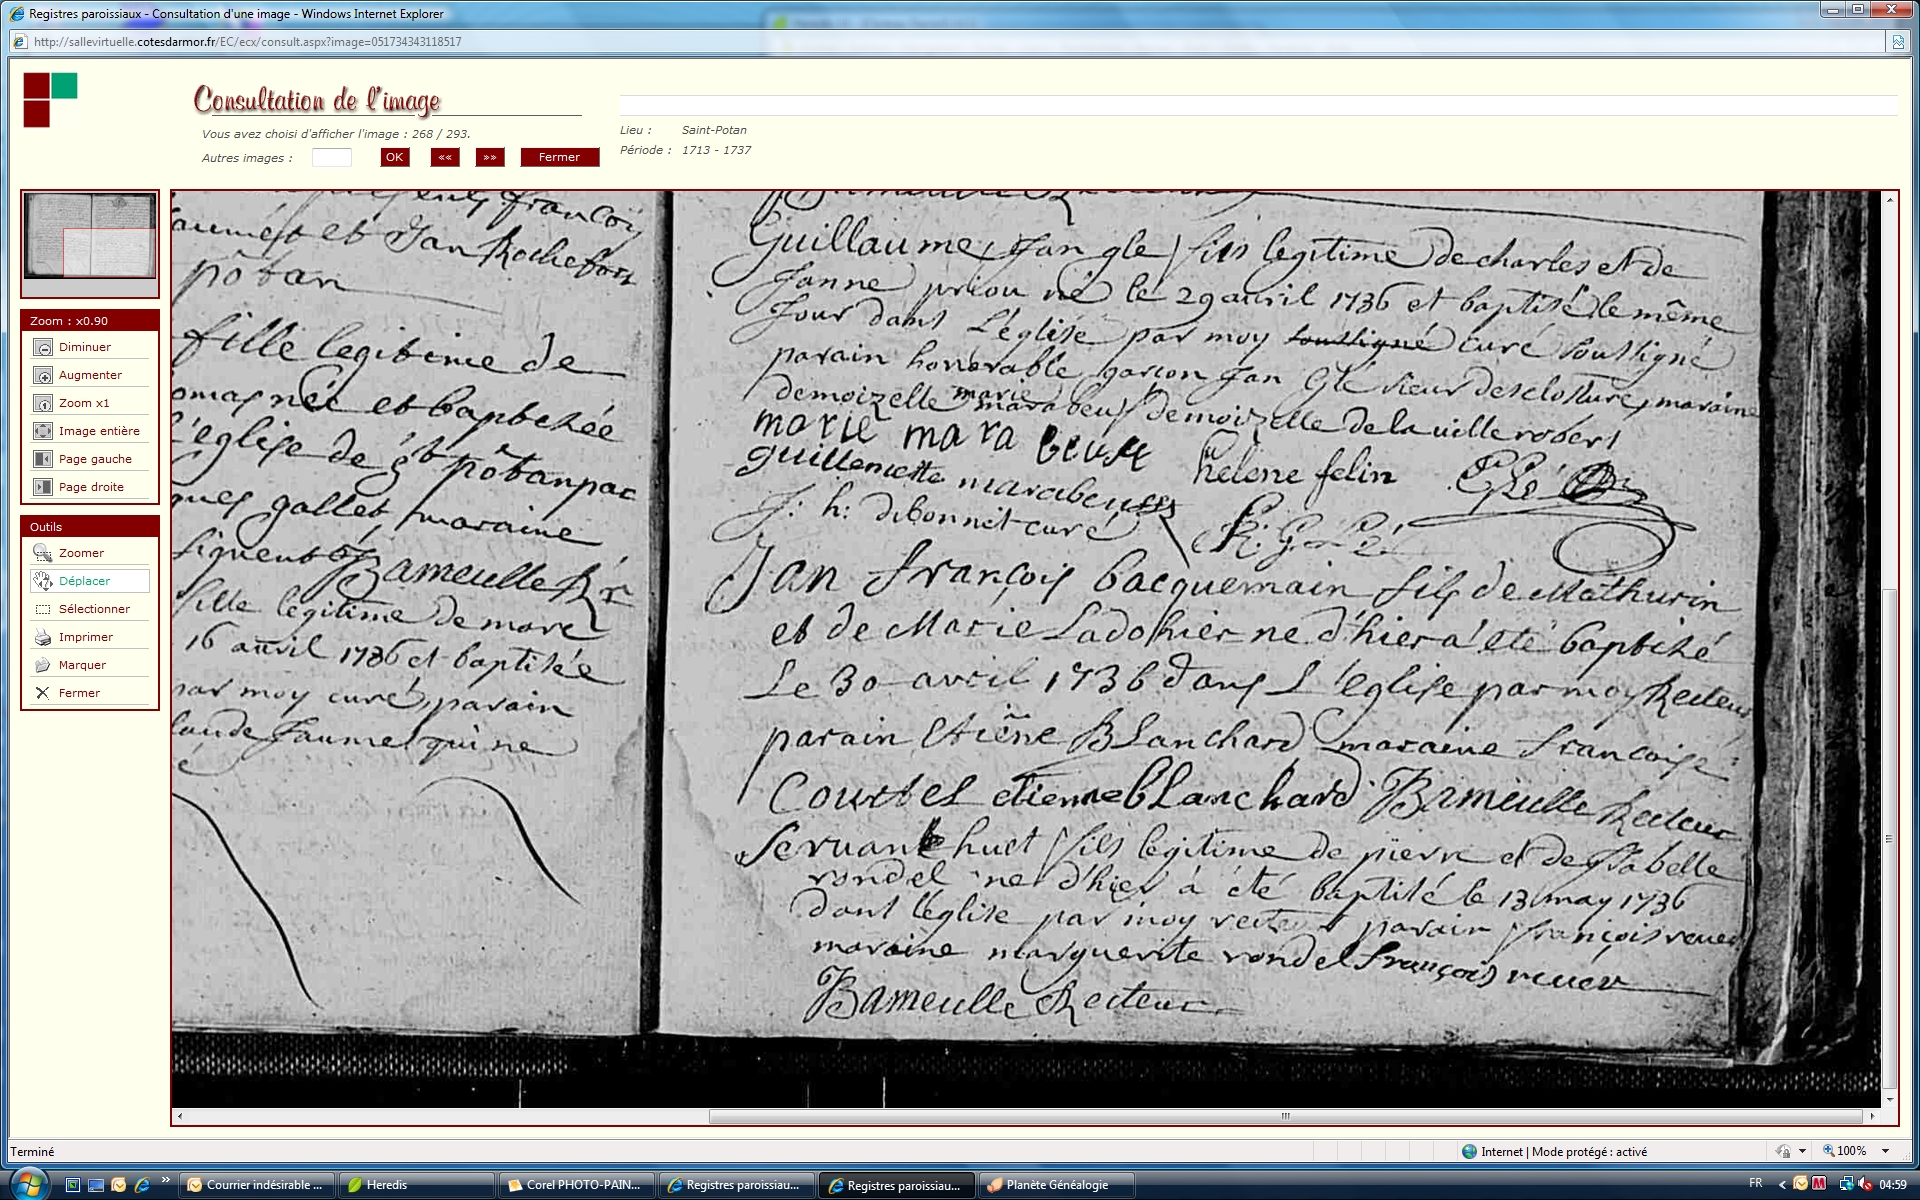 Registres paroissiaux - Consultation d'une image - Windows Internet Explorer
http://sallevirtuelle.cotesdarmor.fr/EC/ecx/consult.aspx?image=051734343118517
Consultation de l'image
Vous avez choisi d'afficher l'image : 268 / 293.
Autres images :
OK
««
»»
Fermer
Lieu : Saint-Potan
Période : 1713 - 1737
Zoom : x0.90
Diminuer
Augmenter
Zoom x1
Image entière
Page gauche
Page droite
Outils
Zoomer
Déplacer
Sélectionner
Imprimer
Marquer
Fermer
françois
et Jan Rochefort
potan
fille legitime de
et baptchée
l'eglise de st potan par
gallet, maraine
signent Bameulle Rr
fille legitime de marc
16 auril 1736 et baptisée
par moy curé, parain
laude Jaumet qui ne
Guillaume Jan glé fils legitime de charles et de
Janne priou né le 29 auril 1736 et baptisé le même
Jour dans L'église par moy soussigné curé soussigné
parain honorable garçon Jan Glé sieur desclosture, maraine
demoizelle marie marabeuf demoizelle de la uille robert
marie mara beuf
guillemette marabeuf helene felin Glé
J: h: dibonnet curé R. G. Lé
Jan François bacquemain fils de Mathurin
et de Marie Ladohier ne d'hier a été baptisé
Le 30 avril 1736 dans L'église par moy Recteur
parain Etiēne BLanchard maraine francoise
Courtel etienne bLanchard Bameulle Recteur
Seruant huet fils legitime de pierre et de Isabelle
rondel ne d'hier a été baptisé le 13 may 1736
dans l'église par moy recteur parain françois reuer
maraine marguerite rondel françois reuer
Bameulle Recteur
Terminé
Internet | Mode protégé : activé
100%
Courrier indésirable ...
Heredis
Corel PHOTO-PAIN...
Registres paroissiau...
Registres paroissiau...
Planète Généalogie
FR
04:59